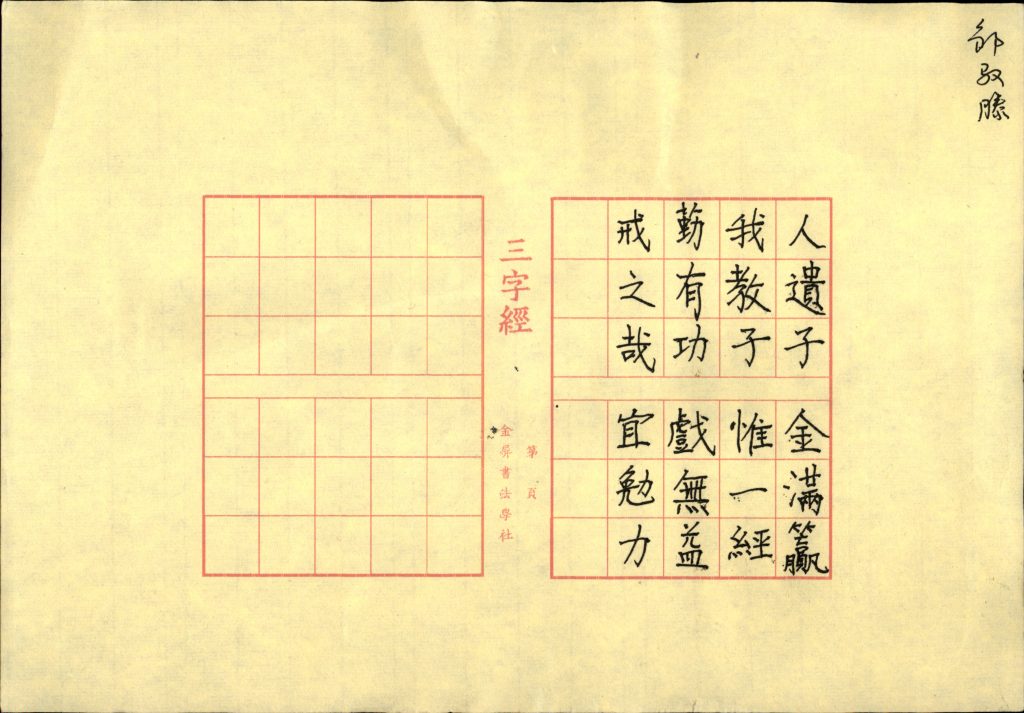 人遺子金滿籝
我教子惟一經
勤有功戲無益
戒之哉宜勉力
三字經
第頁
金屏書法學社